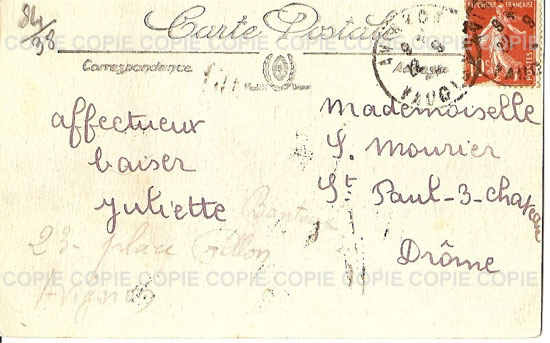 84/38
Carte Postale
Correspondance
Adresse
RÉPUBLIQUE FRANÇAISE
10
POSTES
affectueux
baiser
Juliette
Mademoiselle
S. Mourier
St Paul-3-chateau
Drôme
23 place Crillon
Avignon
COPIE COPIE COPIE COPIE COPIE COPIE COPIE COPIE
COPIE COPIE COPIE COPIE COPIE COPIE COPIE COPIE